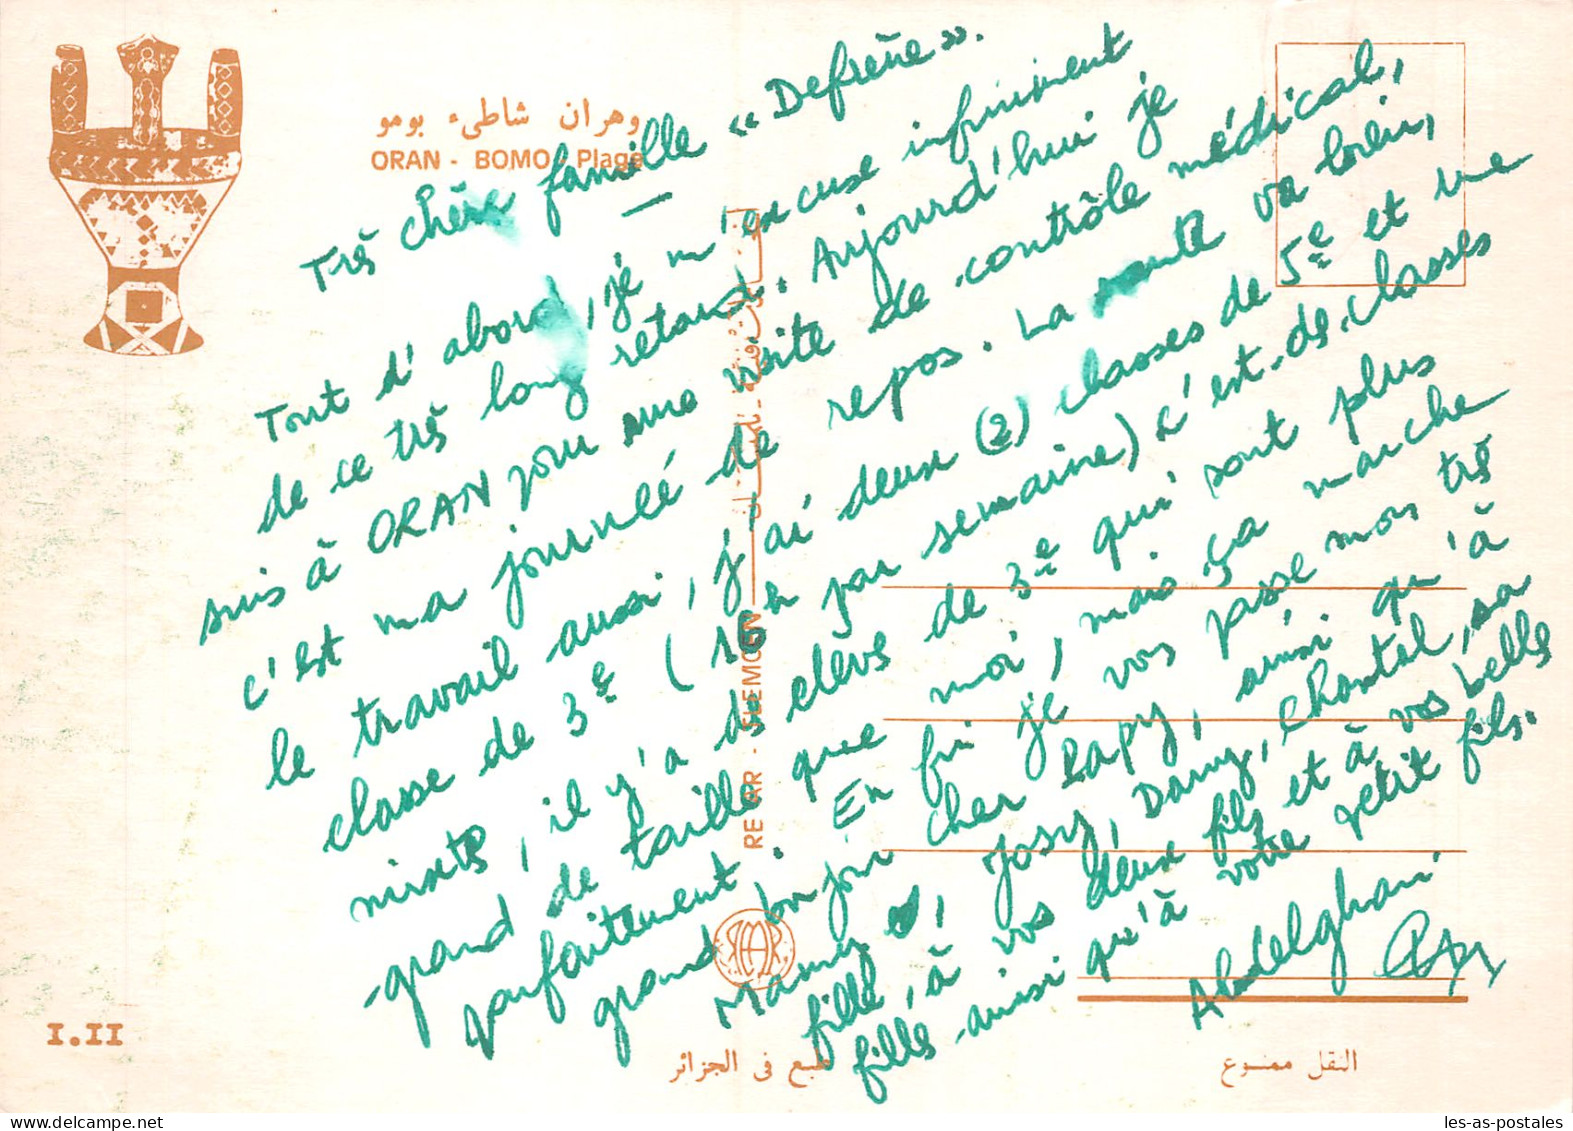 وهران شاطىء بومو
ORAN - BOMO - Plage
Très chère famille « Defrène ».
Tout d'abord, je m'excuse infiniment
de ce très long retard. Aujourd'hui je
suis à ORAN pour une visite de contrôle médical,
c'est ma journée de repos. La santé va bien,
le travail aussi, j'ai deux (2) classes de 5e et une
classe de 3e (16h par semaine) c'est-de-classes
mixtes, il y'a des élèves de 3e qui sont plus
grand de taille que moi, mais ça marche
parfaitement. En fin je vous passe mon très
grand bonjour cher Papy, ainsi qu'à
Mamy, Josy, Dany, Chantal, sa
fille, à vos deux fils et à vos belles
filles ainsi qu'à votre petit fils.
Abdelghani
I.II
طبع فى الجزائر
النقل ممنوع
les-as-postales